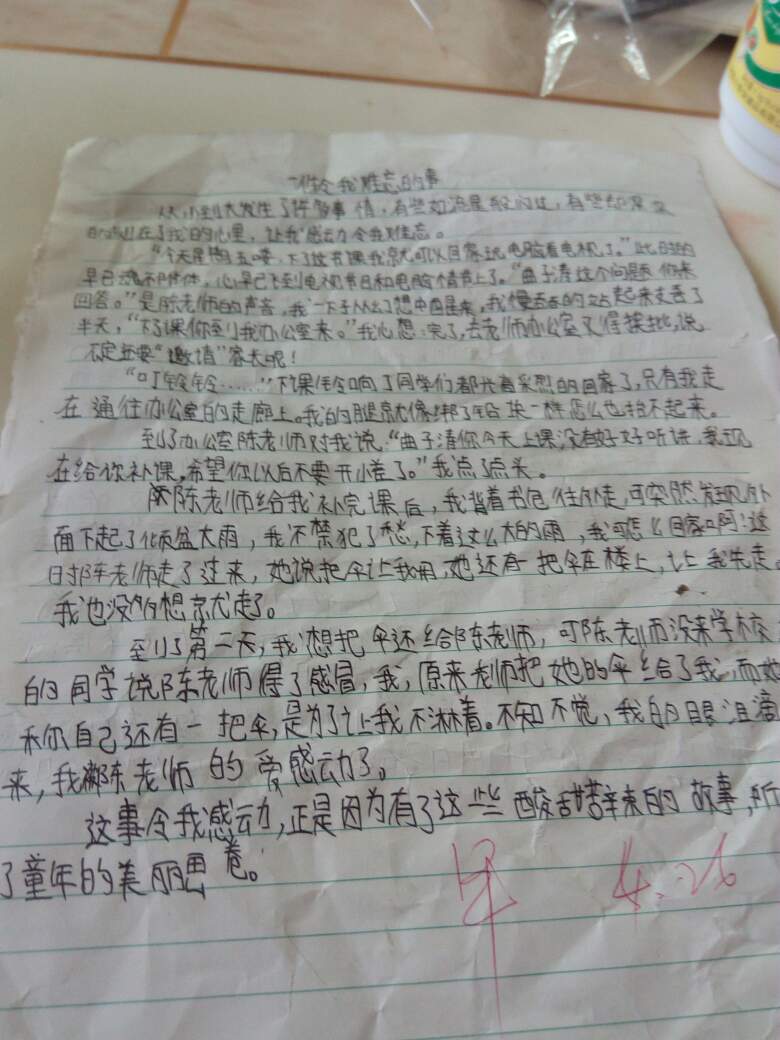 件令我难忘的事
从小到大发生了许多事情，有些如流星般闪过，有些却深深
印在了我的心里，让我感动令我难忘。
“今天是周五喽，下了这节课我就可以回家玩电脑看电视了。”此时的我
早已魂不附体，心早已飞到电视节目和电脑情节上了。“曲子清这个问题你来
回答。”是陈老师的声音，我一下子从幻想中回屋来，我慢吞吞的站起来支吾了
半天，“下了课你到我办公室来。”我心想：完了，去老师办公室又得挨批，说
不定还要“邀请”家长呢！
“叮铃铃……”下课铃响了同学们都兴高采烈的回家了，只有我走
在通往办公室的走廊上。我的腿就像绑了铅块一样怎么也抬不起来。
到了办公室陈老师对我说：“曲子清你今天上课没有好好听讲，我现
在给你补课，希望你以后不要开小差了。”我点了点头。
陈老师给我补完课后，我背着书包往外走，可突然发现外
面下起了倾盆大雨，我不禁犯了愁，下着这么大的雨，我可怎么回家啊！这
时陈老师走了过来，她说把伞让我用，她还有一把伞在楼上，让我先走。
我也没多想就走了。
到了第二天，我想把伞还给陈老师，可陈老师没来学校
的同学说陈老师得了感冒，我，原来老师把她的伞给了我，而她
称自己还有一把伞，是为了让我不淋着。不知不觉，我的眼泪滴
来，我被陈老师的爱感动了。
这事令我感动，正是因为有了这些酸甜苦辛辣的故事，所
了童年的美丽画卷。
4.26